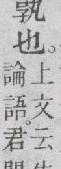 孰也。
上文云
論語。君